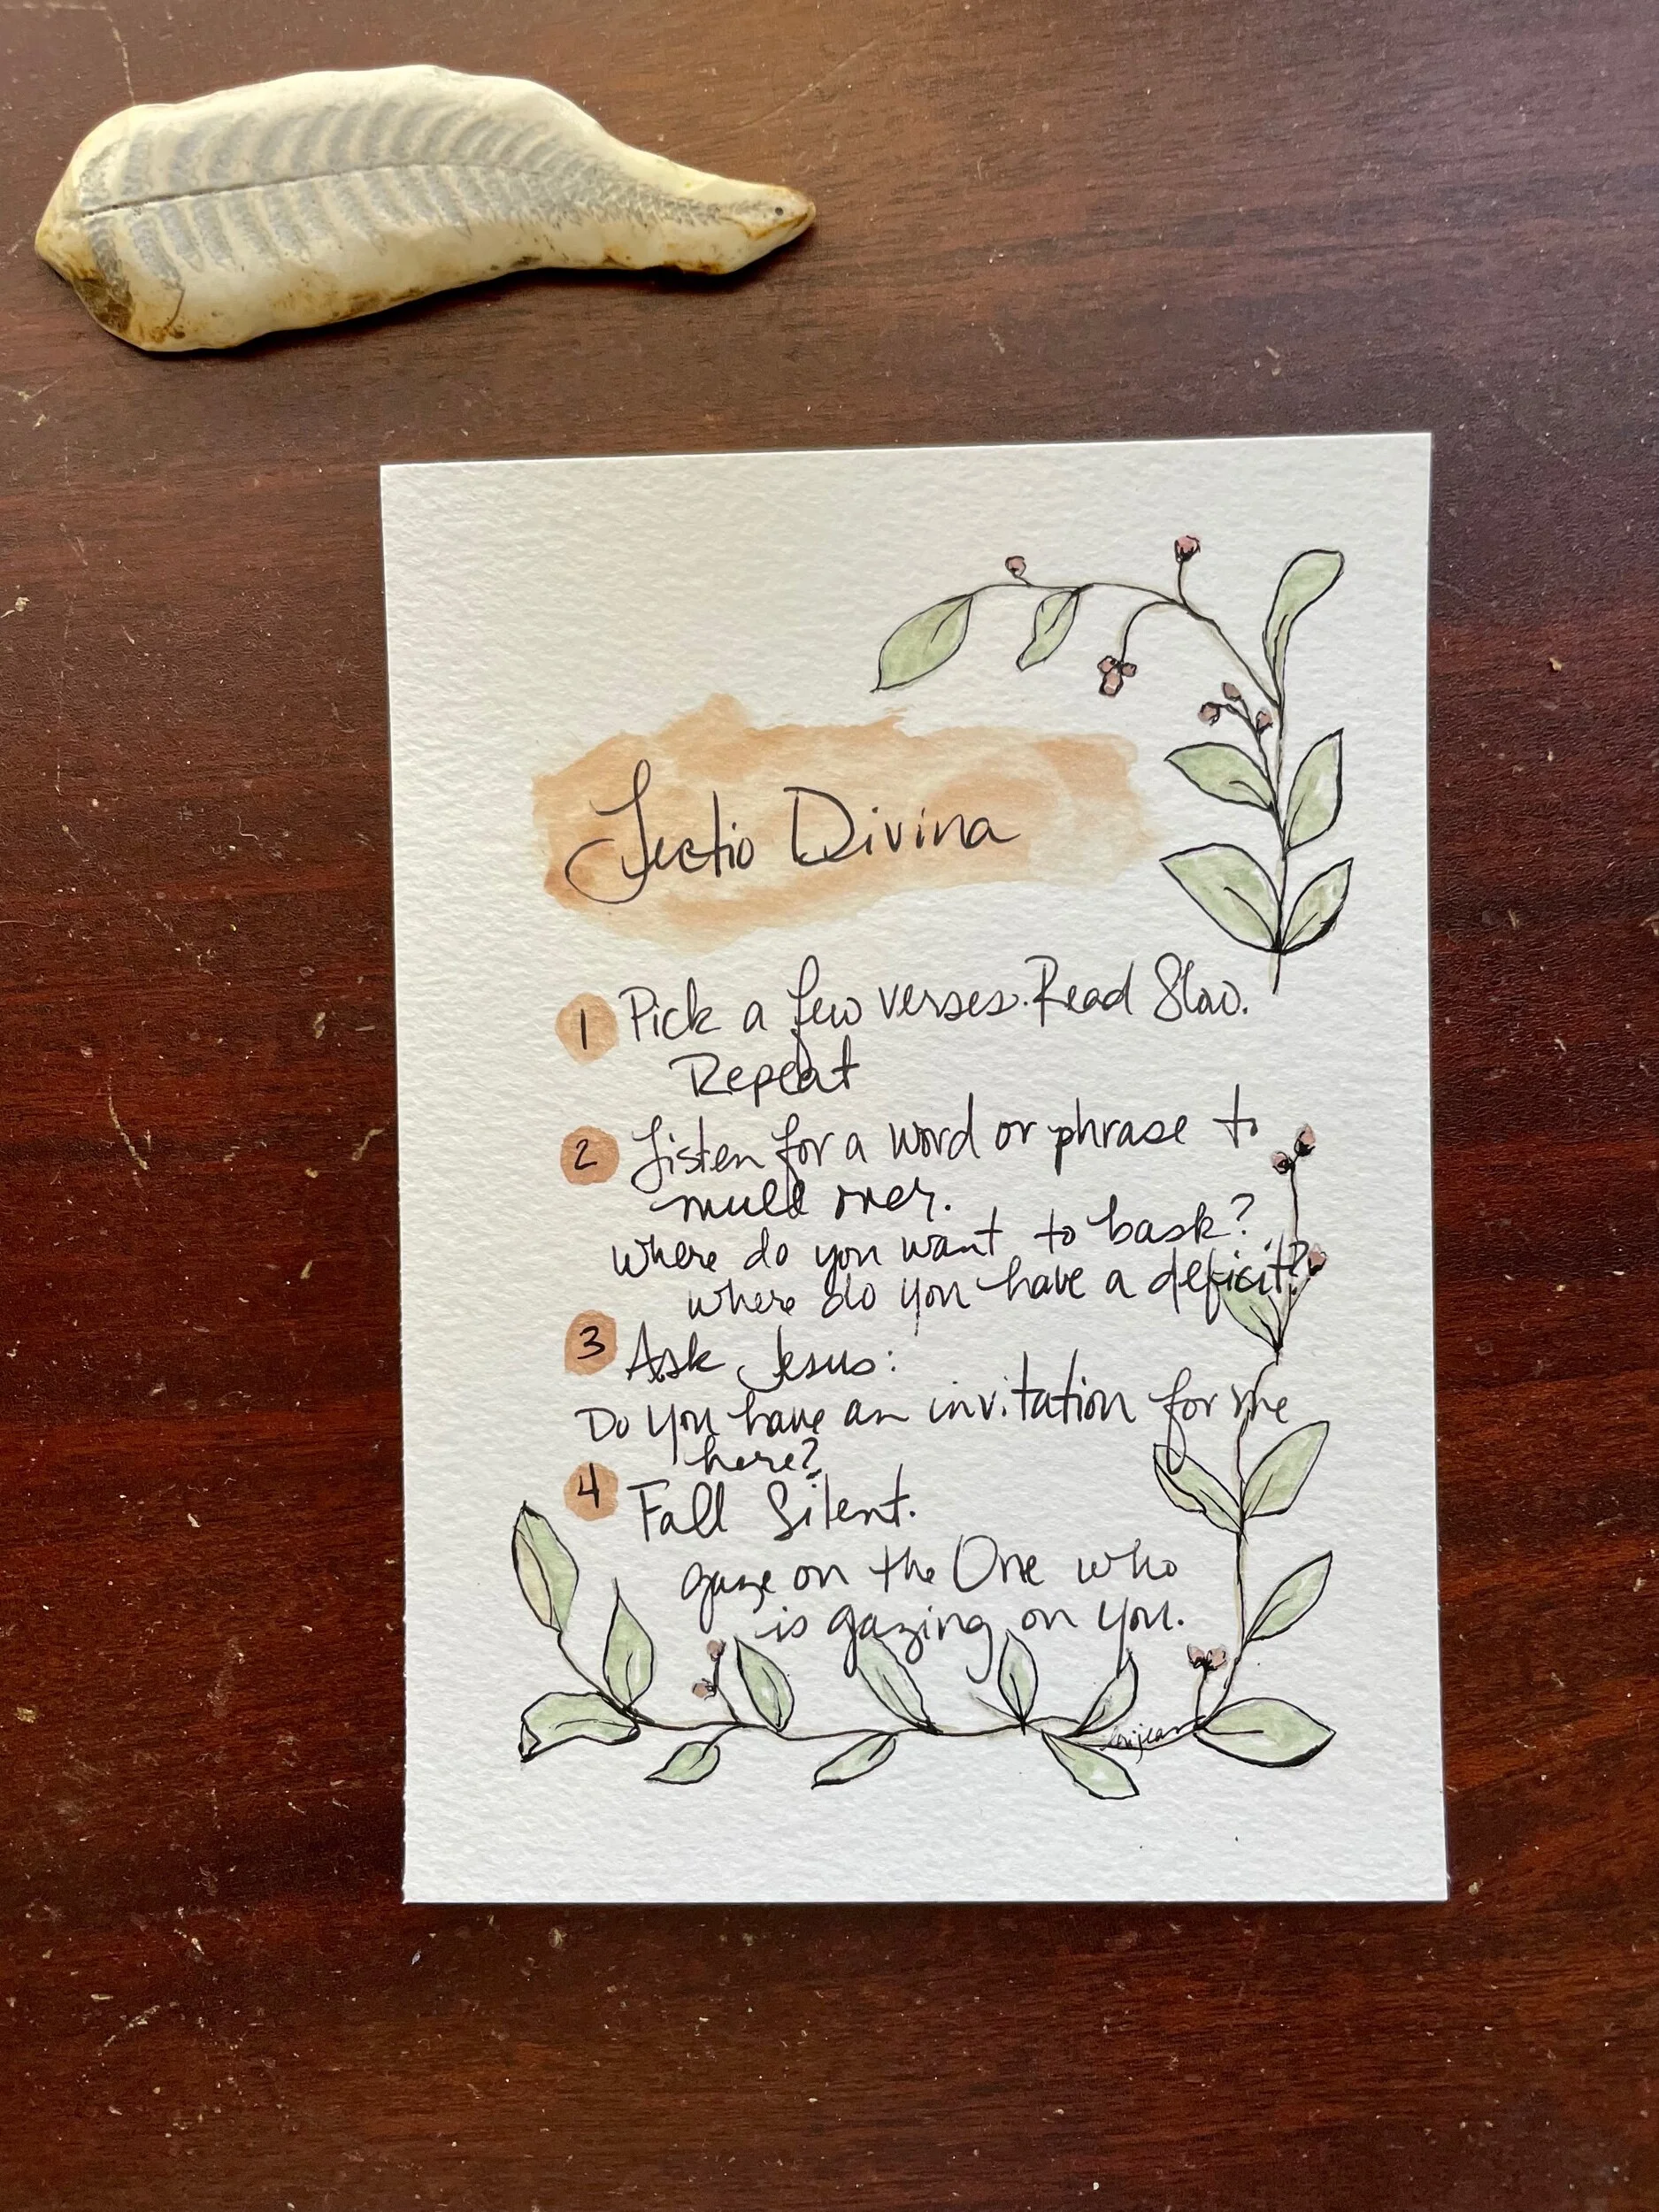 Lectio Divina
1 Pick a few verses. Read Slow.
Repeat
2 Listen for a word or phrase to
mull over.
where do you want to bask?
where do you have a deficit?
3 Ask Jesus:
Do you have an invitation for me
here?
4 Fall Silent.
gaze on the One who
is gazing on you.
lorijean